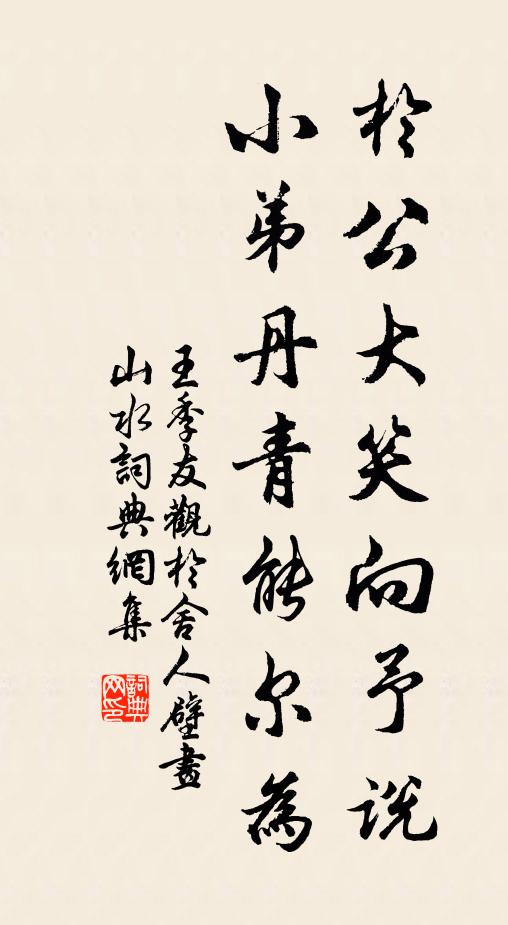 於公大笑向予說
小弟丹青能尔為
王季友觀於舍人壁畫
山水詞典網集
詞典
网印